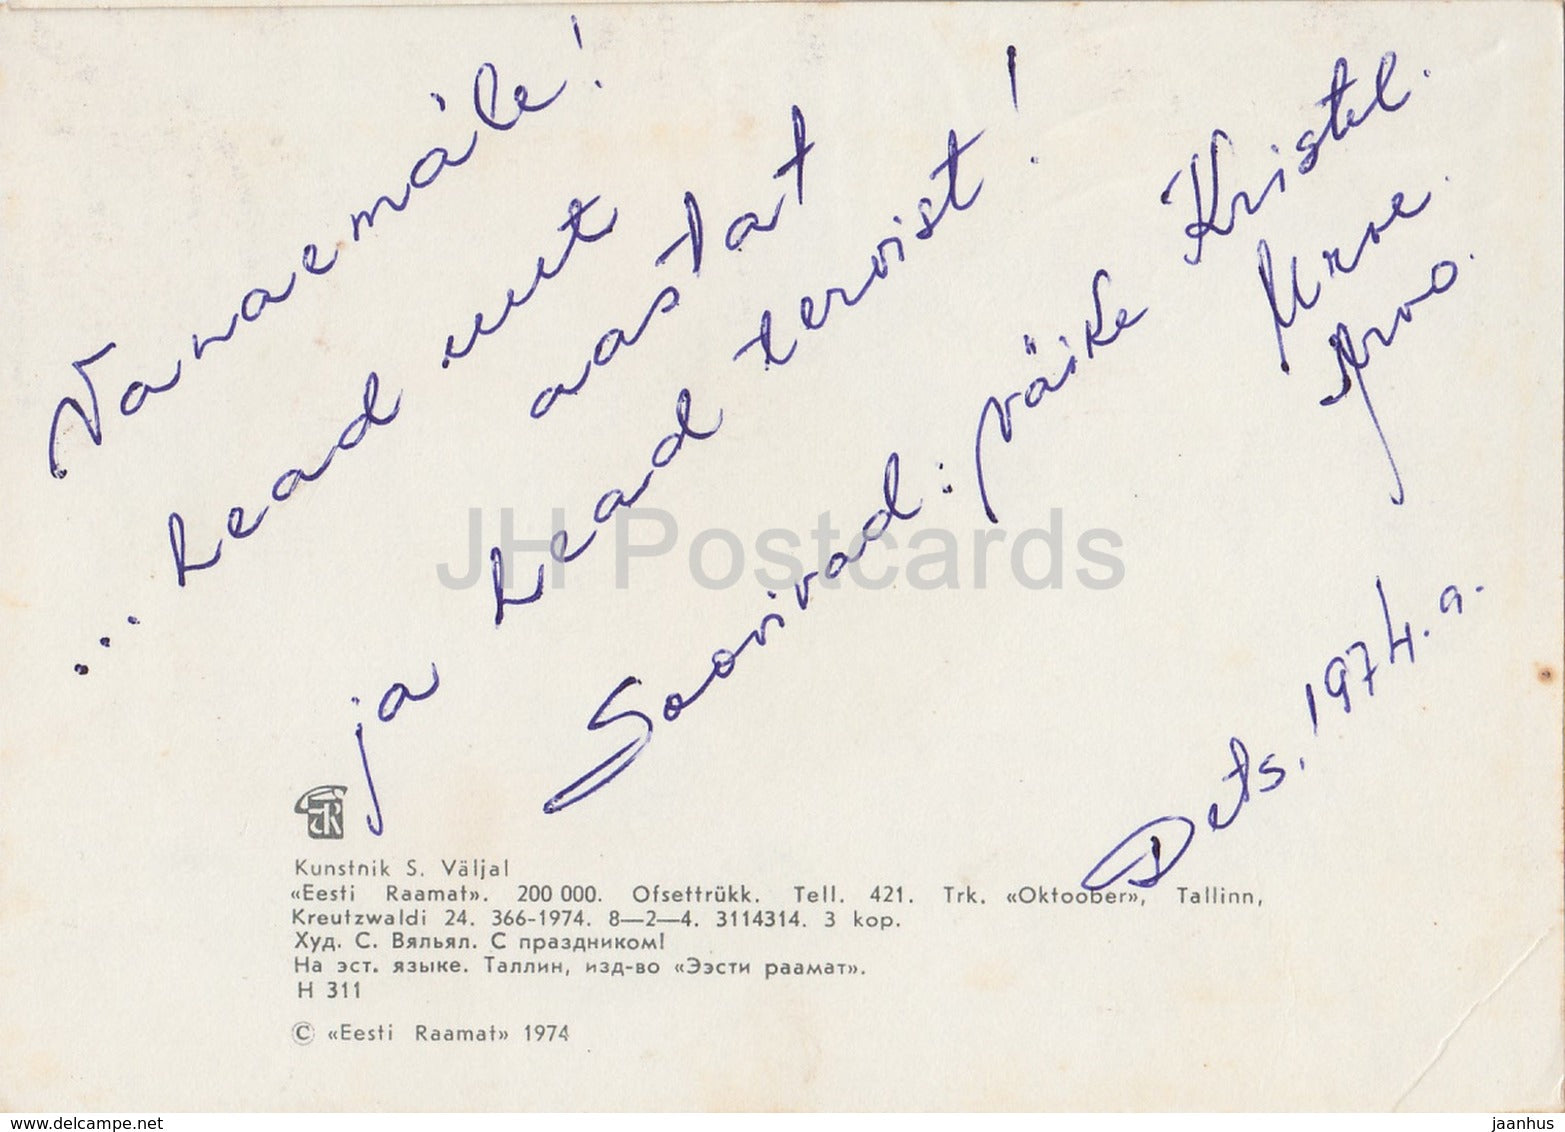 Vanaemäle!
... head uut
aastat
ja head tervist!
Soovivad: väike Kristel.
Urve.
Arvo.
Dets. 1974. a.
JH Postcards
Kunstnik S. Väljal
«Eesti Raamat». 200 000. Ofsettrükk. Tell. 421. Trk. «Oktoober», Tallinn,
Kreutzwaldi 24. 366-1974. 8—2—4. 3114314. 3 kop.
Худ. С. Вяльял. С праздником!
На эст. языке. Таллин, изд-во «Ээсти раамат».
Н 311
© «Eesti Raamat» 1974
www.delcampe.net
jaanhus